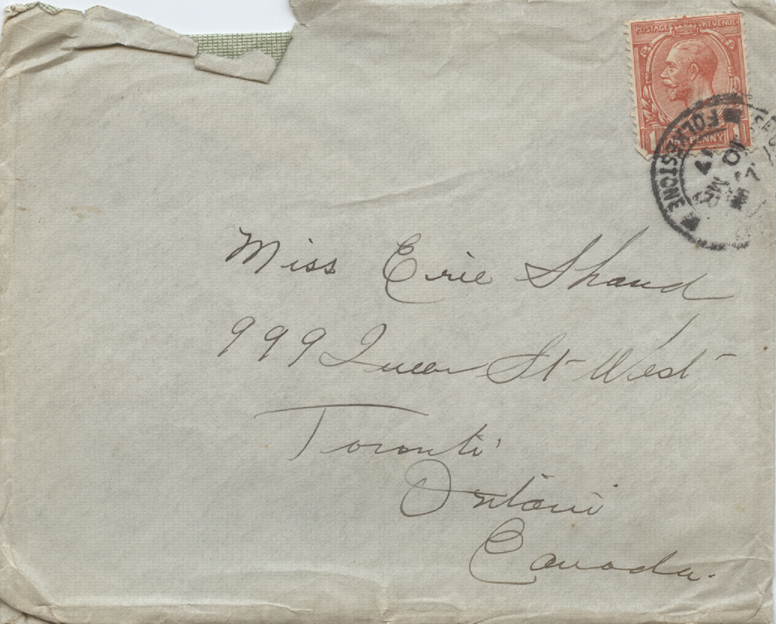 POSTAGE REVENUE
1 PENNY 1
FOLKESTONE
Miss Erie Shaud
999 Queen St West
Toronto
Ontario
Canada.